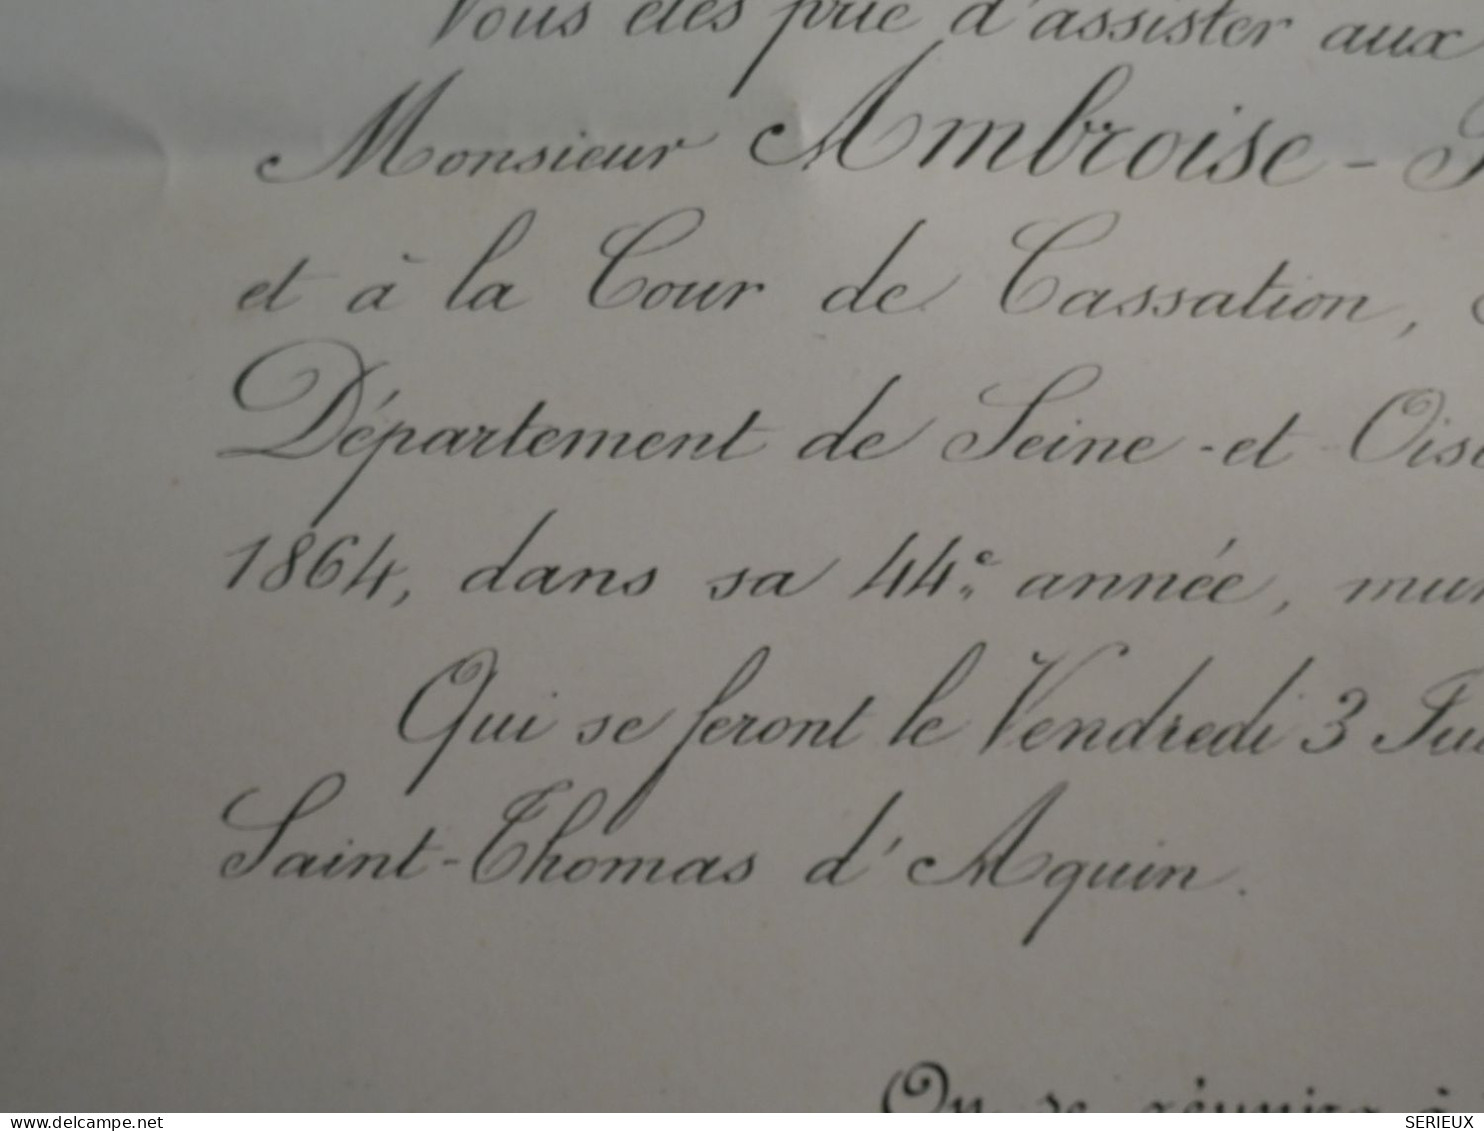 Vous êtes prié d'assister aux
Monsieur Ambroise -
et à la Cour de Cassation,
Département de Seine-et-Oise
1864, dans sa 44e année,
Qui se feront le Vendredi 3
Saint-Thomas d'Aquin.
On se réunira à
delcampe.net
SERIEUX